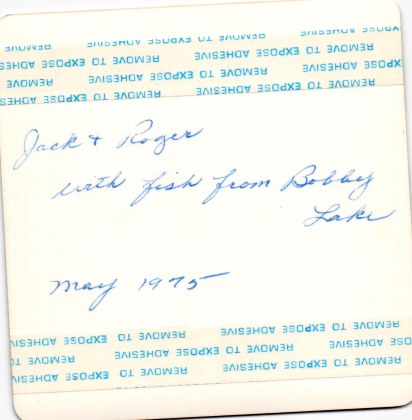 REMOVE TO EXPOSE ADHESIVE REMOVE
ADHESIVE REMOVE TO EXPOSE ADHESIVE REMOVE
REMOVE TO EXPOSE ADHESIVE REMOVE TO EXPOSE ADHESIVE
ADHESIVE REMOVE TO EXPOSE ADHESIVE REMOVE
Jack + Roger
with fish from Bobby
Lake
May 1975
REMOVE TO EXPOSE ADHESIVE REMOVE TO EXPOSE ADHESIVE
ADHESIVE REMOVE TO EXPOSE ADHESIVE REMOVE
REMOVE TO EXPOSE ADHESIVE REMOVE TO EXPOSE ADHESIVE